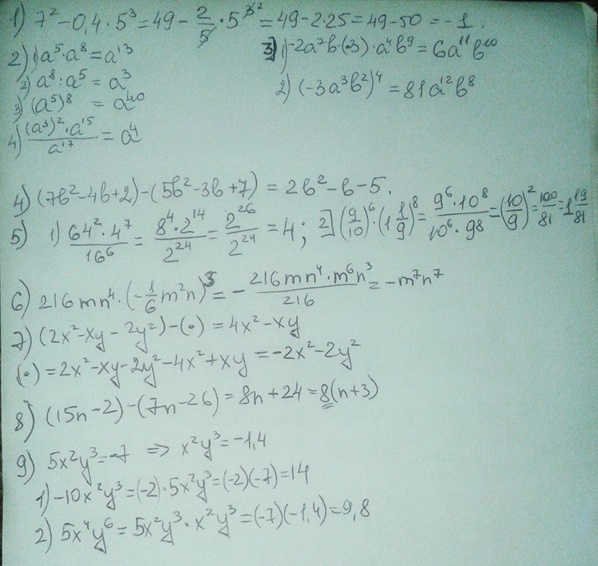 1) 7² - 0,4 · 5³ = 49 - 2/5 · 5³ ² = 49 - 2·25 = 49 - 50 = -1.
2) 1) a⁵ · a⁸ = a¹³
2) a⁸ : a⁵ = a³
3) (a⁵)⁸ = a⁴⁰
4) (a³)² · a¹⁵ / a¹⁷ = a⁴
3) 1) -2a⁷b·(-3)·a⁴b⁹ = 6a¹¹b¹⁰
2) (-3a³b²)⁴ = 81a¹²b⁸
4) (7b² - 4b + 2) - (5b² - 3b + 7) = 2b² - b - 5.
5) 1) 64² · 4⁷ / 16⁶ = 8⁴ · 2¹⁴ / 2²⁴ = 2²⁶ / 2²⁴ = 4; 2) (9/10)⁶ · (1 1/9)⁸ = 9⁶ · 10⁸ / 10⁶ · 9⁸ = (10/9)² = 100/81 = 1 19/81
6) 216mn⁴ · (-1/6 m²n)³ = - 216mn⁴ · m⁶n³ / 216 = -m⁷n⁷
7) (2x² - xy - 2y²) - (·) = 4x² - xy
(·) = 2x² - xy - 2y² - 4x² + xy = -2x² - 2y²
8) (15n - 2) - (7n - 26) = 8n + 24 = 8(n + 3)
9) 5x²y³ = -7 ⇒ x²y³ = -1,4
1) -10x²y³ = (-2)·5x²y³ = (-2)(-7) = 14
2) 5x⁴y⁶ = 5x²y³ · x²y³ = (-7)(-1,4) = 9,8